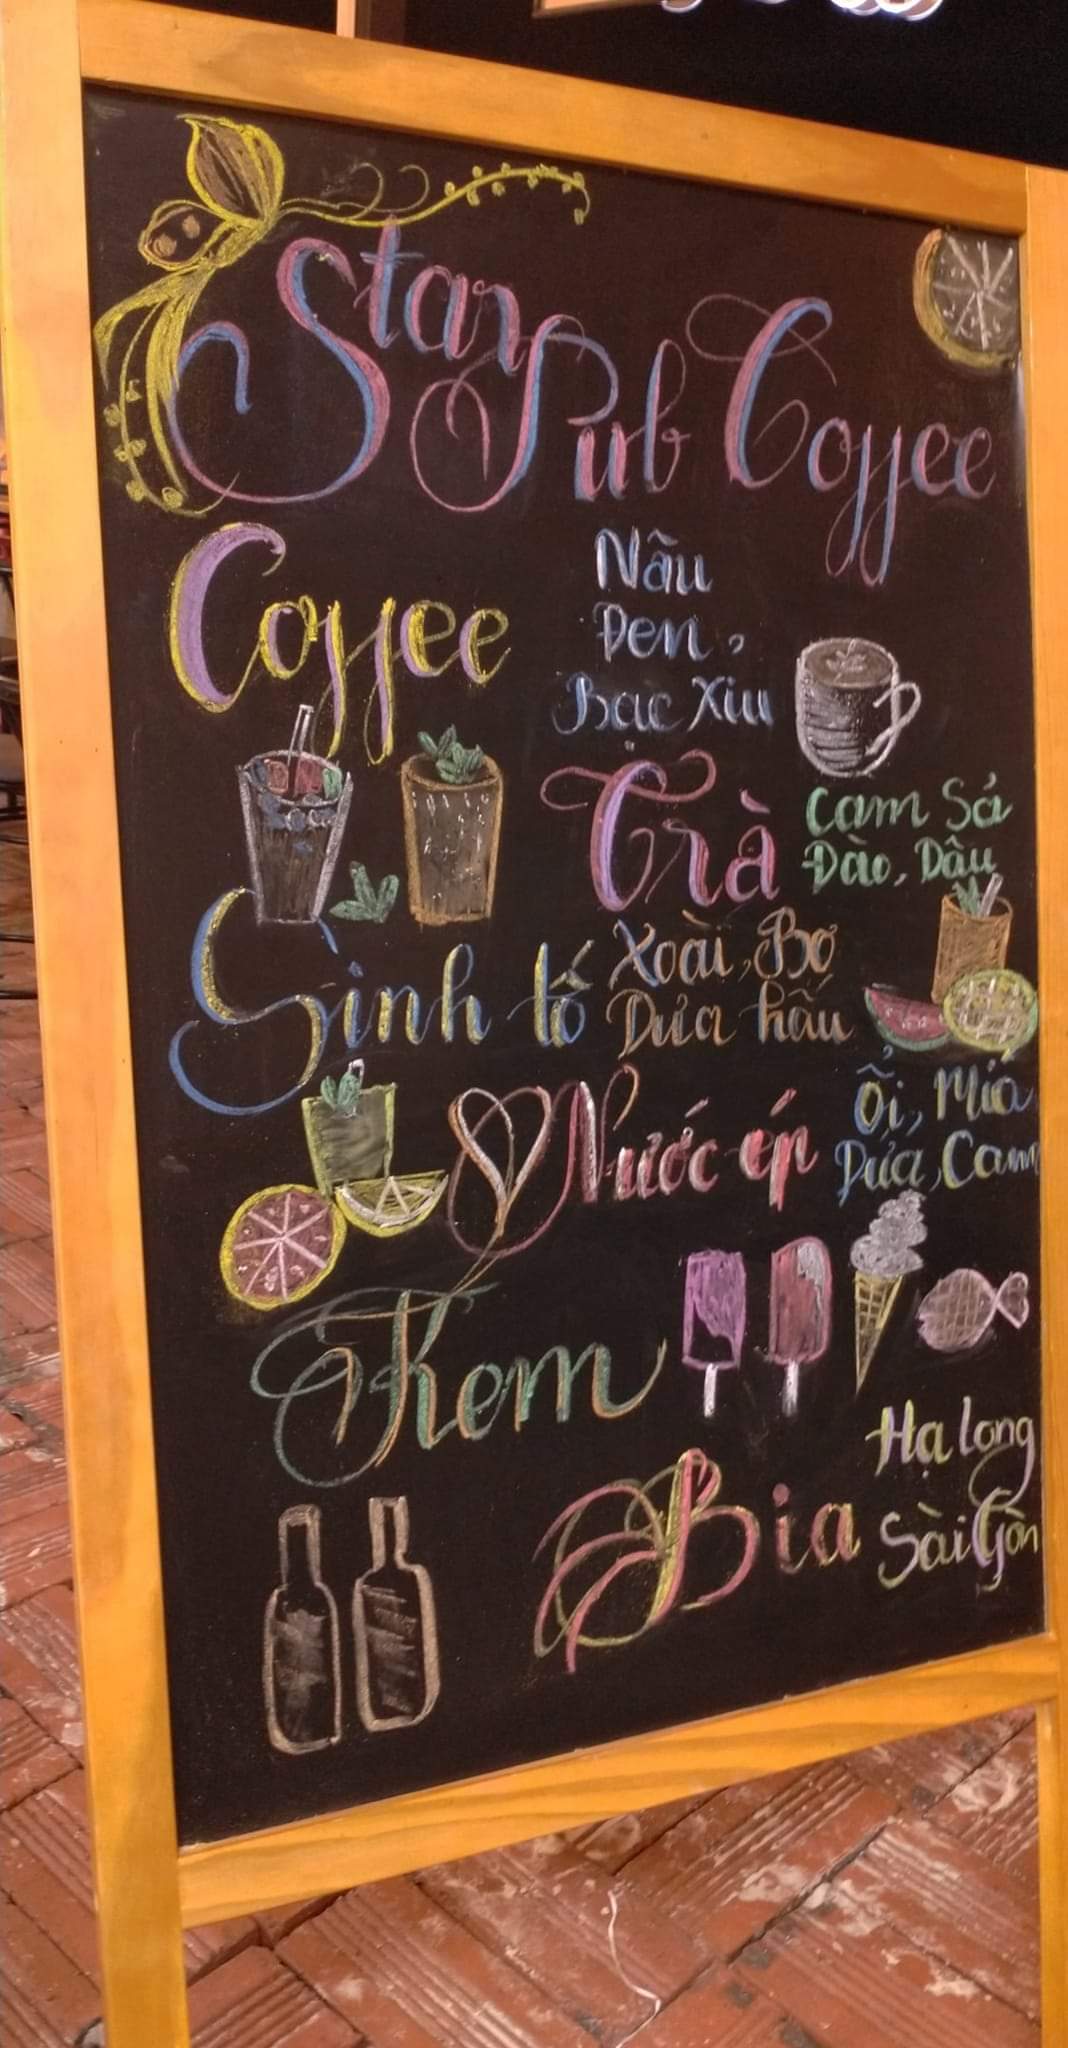 Star Pub Coffee
Coffee
Nâu
Đen,
Bạc Xiu
Trà
Cam Sả
Đào, Dâu
Sinh tố
Xoài, Bơ
Dưa hấu
Nước ép
Ổi, Mía
Dứa, Cam
Kem
Bia
Hạ Long
Sài Gòn